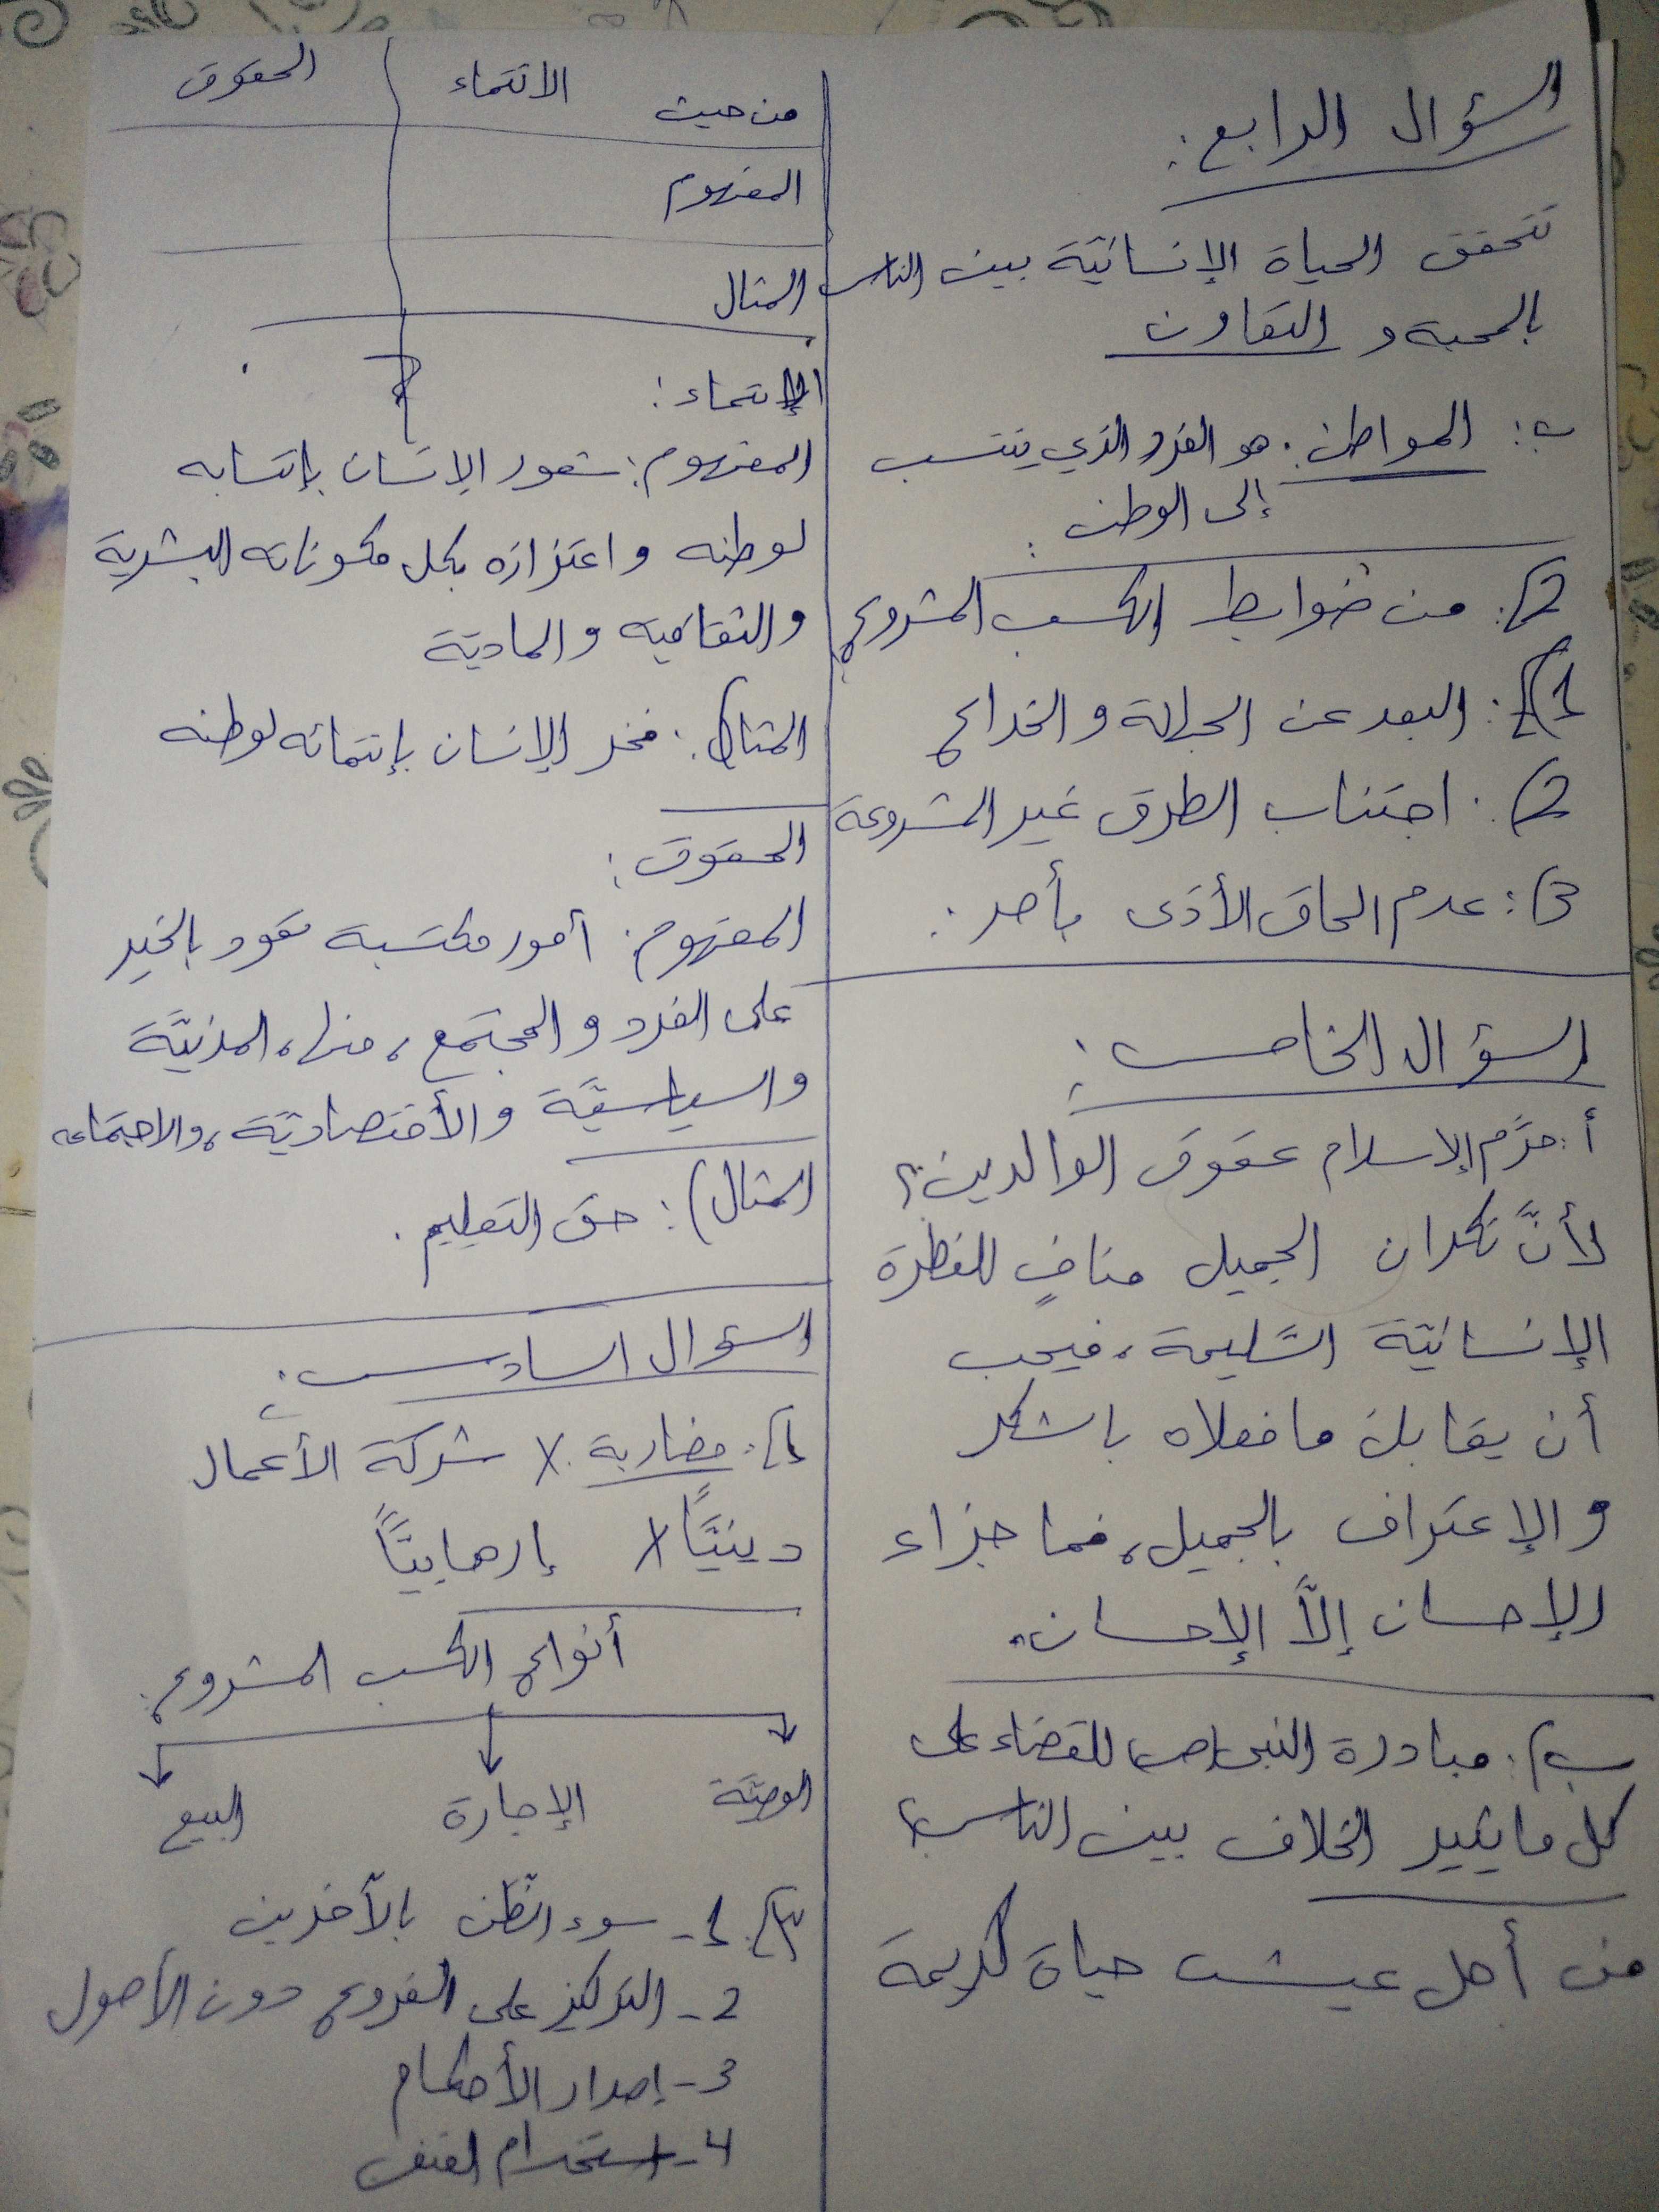 السؤال الرابع:
تتحقق الحياة الإنسانيّة بين الناس
بالمحبة و التعاون
ب: المواطن. هو الفرد الذي ينتسب
إلى الوطن.
2). من ضوابط الكسب المشروع
1): البعد عن الجهالة والخداع
2). اجتناب الطرق غير المشروعة
3): عدم الحاق الأذى بأحد.
السؤال الخامس:
أ: حرّم الإسلام عقوق الوالدين؟
لأنَّ نكران الجميل منافٍ للفطرة
الإنسانيّة السَّليمة، فيجب
أن يقابل ما فعلاه باشكر
و الإعتراف بالجميل، فما جزاء
الإحسان إلّا الإحسان.
ب). مبادرة النبي (ص) للقضاء على
كل ما يثير الخلاف بين الناس؟
من أجل عيش حياة كريمة
من حيث الانتماء الحقوق
المفهوم
المثال
الإنتماء:
المفهوم: شعور الإنسان بإنتسابه
لوطنه و اعتزازه بكل مكوناته البشرية
والثقافيه والماديّة
المثال). فخر الإنسان بإنتمائه لوطنه
الحقوق:
المفهوم. أمور مكتسبة تعود بالخير
على الفرد و المجتمع، منها، المدنيَّة
والسياسيَّة والأقتصاديّة، والاجتماعه
المثال): حق التعليم.
السؤال السادس:
1). مضاربة. X شركة الأعمال
دينيَّاً X إرهابيَّاً
أنواع الكسب المشروع:
الوصيَّة الإجارة البيع
3). 1- سوء الظّن بالآخرين
2- التركيز على الفروع دون الأصول
3- إصدار الأحكام
4- استخدام العنف